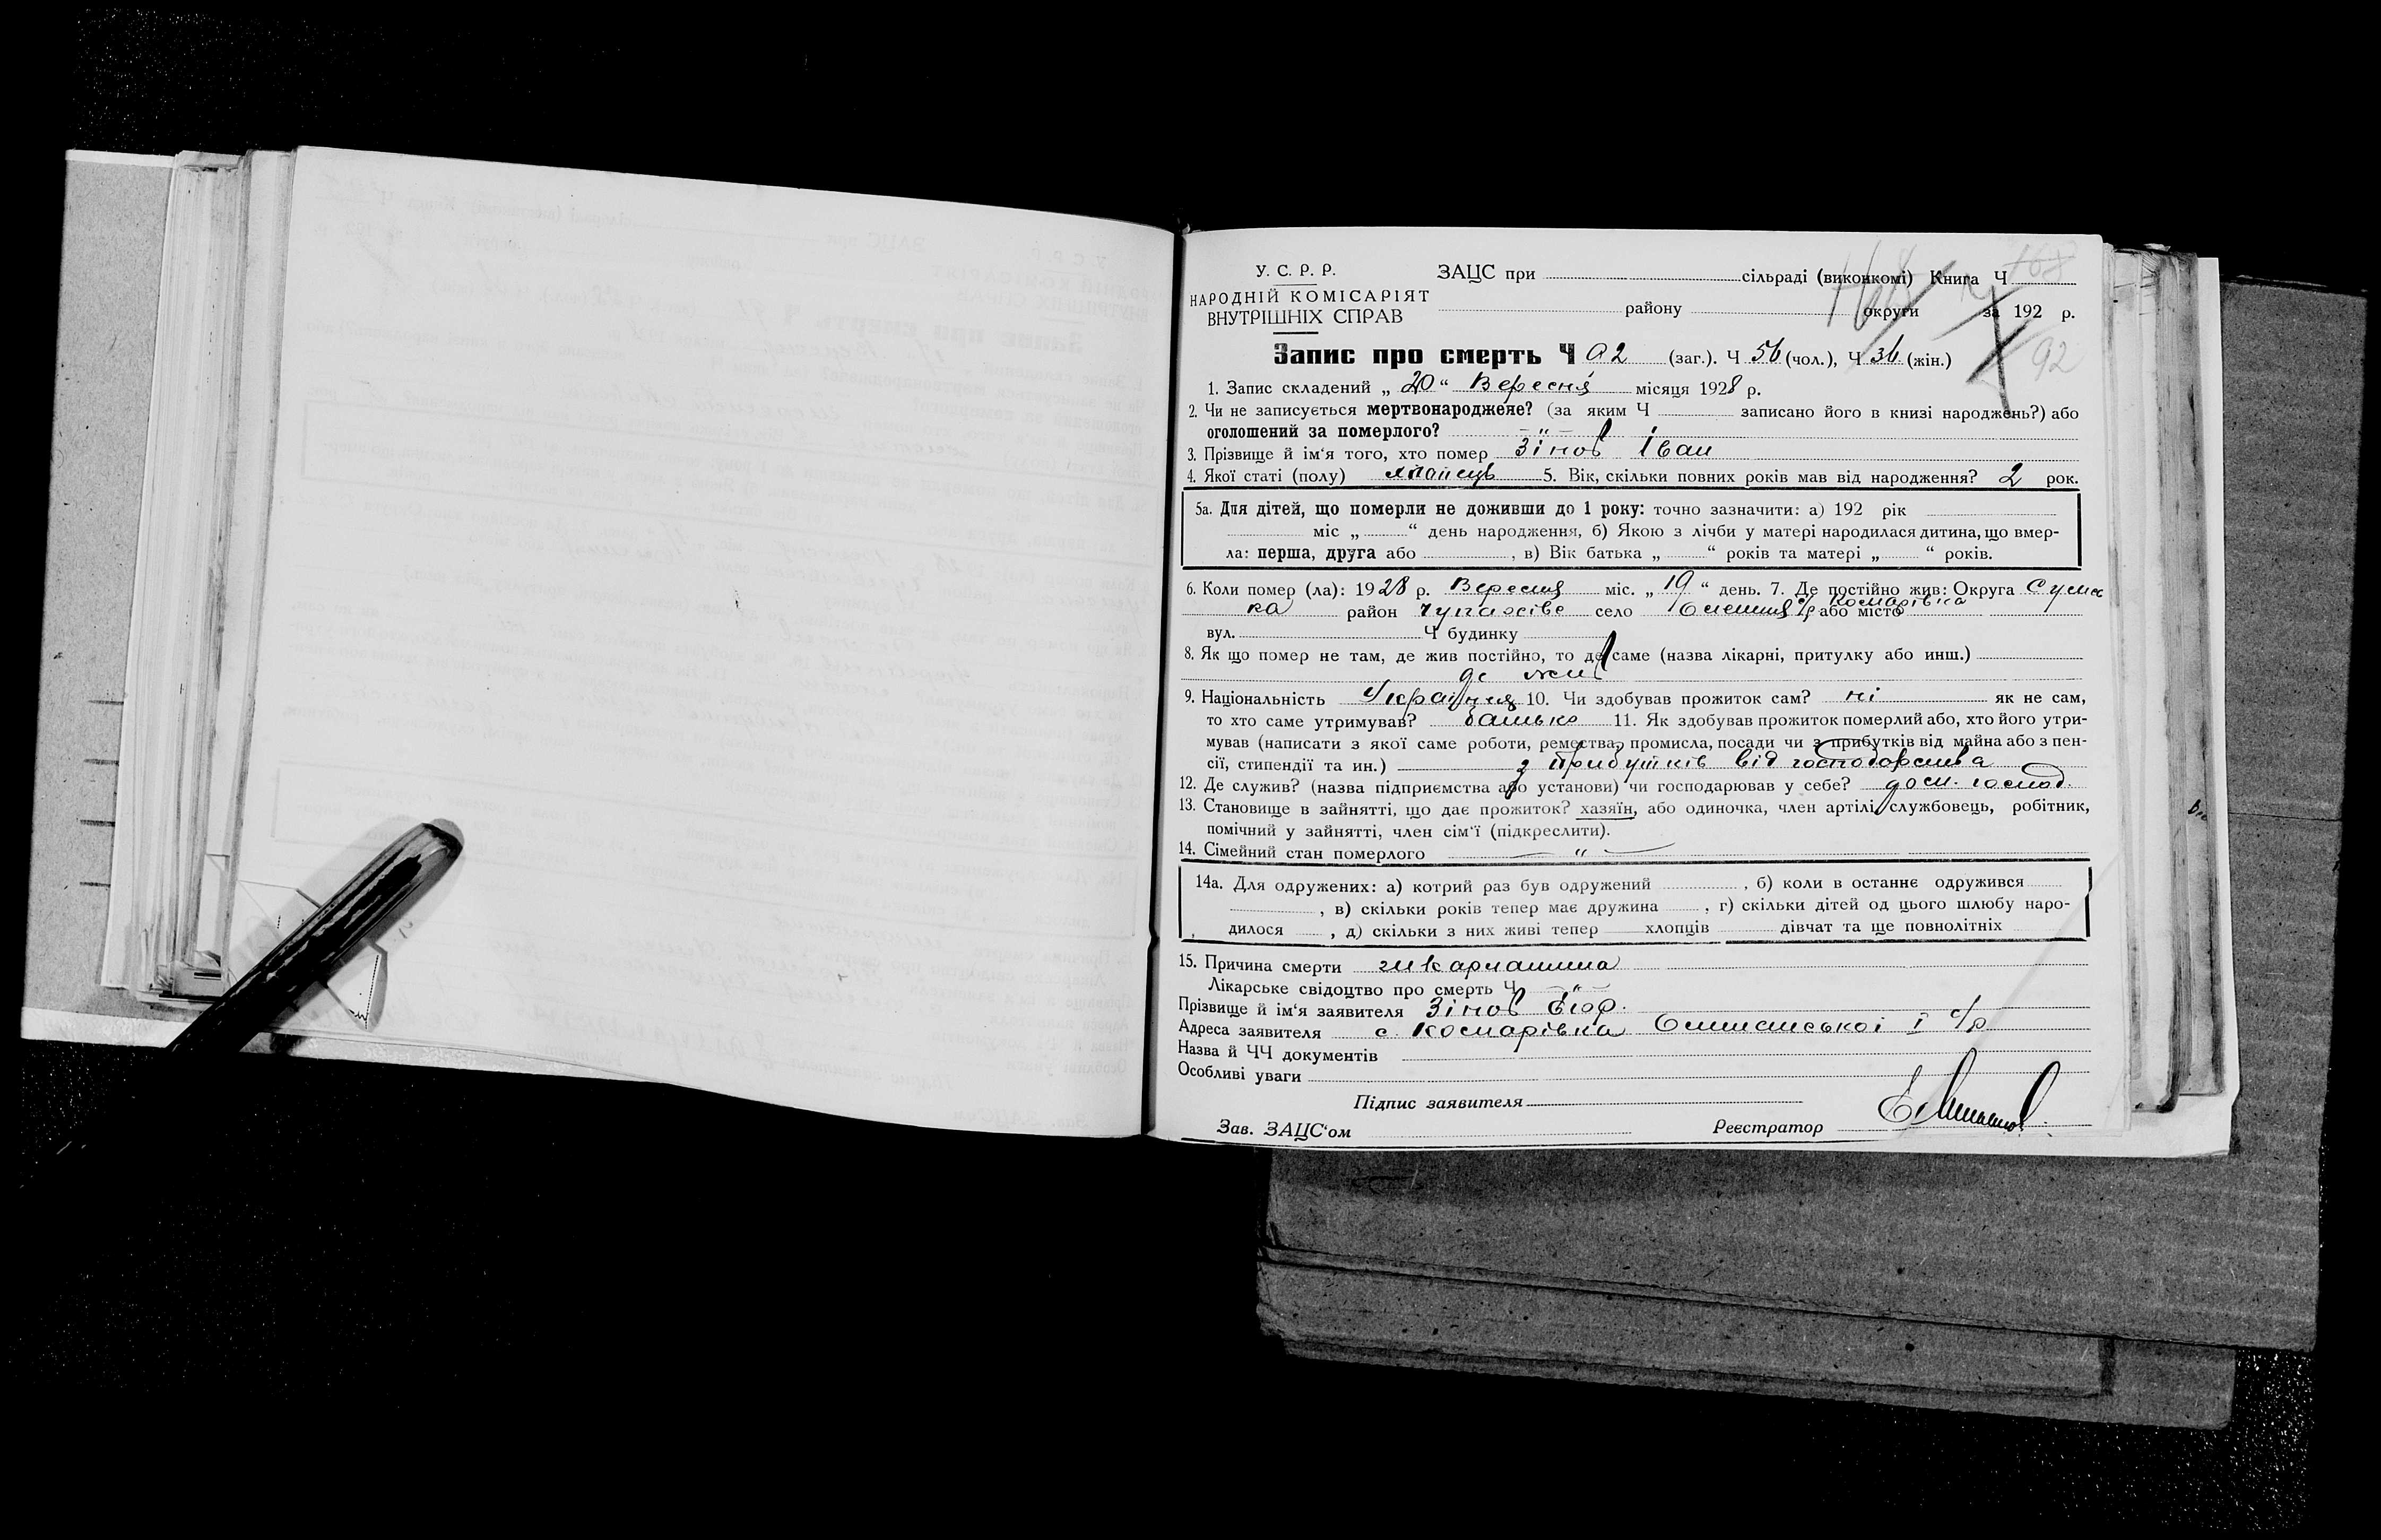 У. С. Р. Р.
НАРОДНІЙ КОМІСАРІЯТ
ВНУТРІШНІХ СПРАВ
ЗАЦС при сільраді (виконкомі) Книга Ч 168
району округи за 192 р.
92
Запис про смерть Ч 92 (заг.). Ч 56 (чол.), Ч 36 (жін.)
1. Запис складений „ 20 “ Вересня місяця 1928 р.
2. Чи не записується мертвонароджене? (за яким Ч записано його в книзі народжень?) або
оголошений за померлого? – „ –
3. Прізвище й ім'я того, хто помер Зінов Іван
4. Якої статі (полу) 5. Вік, скільки повних років мав від народження? 2 рок.
5а. Для дітей, що померли не доживши до 1 року: точно зазначити: а) 192 рік
міс „ “ день народження, б) Якою з лічби у матері народилася дитина, що вмер-
ла: перша, друга або , в) Вік батька „ “ років та матері „ “ років.
6. Коли помер (ла): 1928 р. Вересня міс. „ 19 “ день. 7. Де постійно жив: Округа Сумсь
ка район село або місто Комарівка
вул. Ч будинку
8. Як що помер не там, де жив постійно, то де саме (назва лікарні, притулку або инш.)
де жив
9. Національність 10. Чи здобував прожиток сам? ні як не сам,
то хто саме утримував? батько 11. Як здобував прожиток померлий або, хто його утри-
мував (написати з якої саме роботи, ремества, промисла, посади чи з прибутків від майна або з пен-
сії, стипендії та ин.) з прибутків від господарства
12. Де служив? (назва підприємства або установи) чи господарював у себе? господ.
13. Становище в зайнятті, що дає прожиток? хазяїн, або одиночка, член артілі, службовець, робітник,
помічний у зайнятті, член сім'ї (підкреслити).
14. Сімейний стан померлого – „ –
14а. Для одружених: а) котрий раз був одружений , б) коли в останнє одружився
, в) скільки років тепер має дружина , г) скільки дітей од цього шлюбу наро-
дилося , д) скільки з них живі тепер хлопців дівчат та ще повнолітніх
15. Причина смерти
Лікарське свідоцтво про смерть Ч – „ –
Прізвище й ім'я заявителя Зінов
Адреса заявителя с. Комарівка І с/р
Назва й ЧЧ документів
Особливі уваги
Підпис заявителя
Зав. ЗАЦС'ом Реєстратор